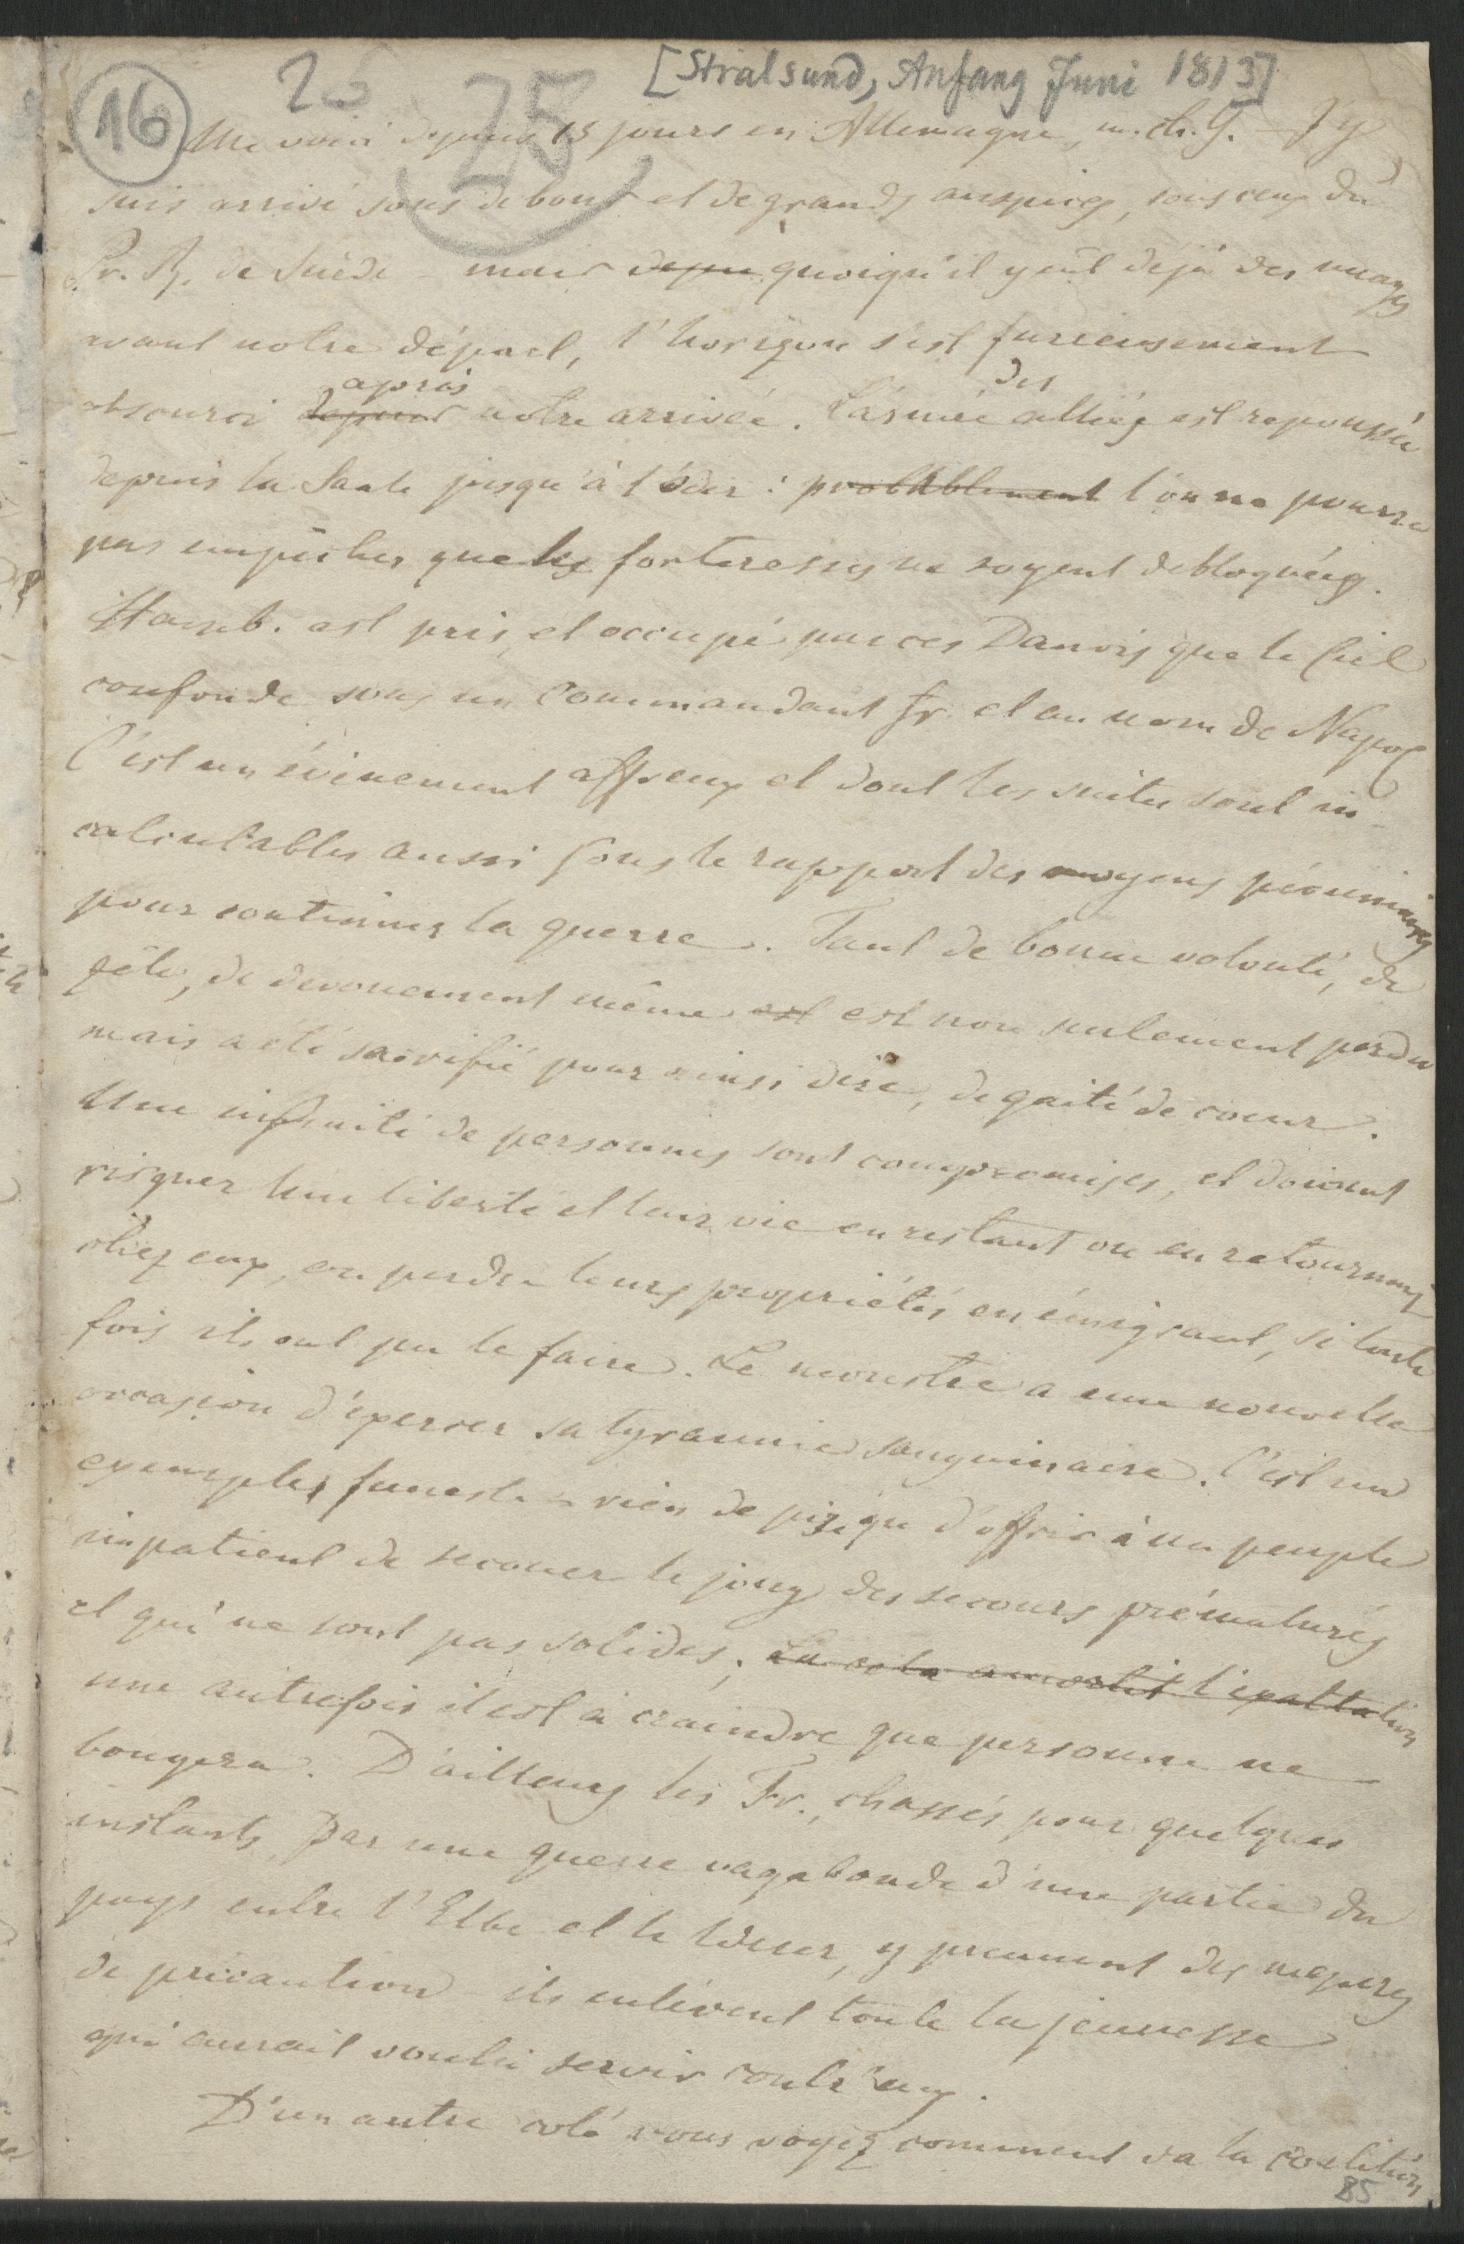 [Stralsund, Anfang Juni 1813]
16 25 25
Me voici depuis 15 jours en Allemagne, m. ch. G. J'y
suis arrivé sous de bons et de grands auspices, sous ceux du
Pr. R. de Suède – mais depu quoiqu'il y eût déjà des nuages
avant notre départ, l'horizon s'est furieusement
obscurci depuis après notre arrivée. L'armée des alliés est repoussée
depuis la Saale jusqu'à l'Oder : probablement l'on ne pourra
pas empêcher que les forteresses ne soyent debloquées.
Hamb. est pris, et occupé par ces Danois que le Ciel
confonde sous un commandant fr. et au nom de Napol
C'est un évènement affreux et dont les suites sont in-
calculables aussi sous le rapport des moyens pécuniaires
pour continuer la guerre. Tant de bonne volonté, de
zèle, de devouement même est est non seulement perdu
mais a été sacrifié pour ainsi dire, de gaité de coeur.
Une infinité de personnes sont compromises, et doivent
risquer leur liberté et leur vie en restant ou en retournant
chez eux, ou perdre leurs propriétés en émigrant, si toute
fois ils ont pu le faire. Le monstre a une nouvelle
occasion d'exercer sa tyrannie sanguinaire. C'est un
exemple funeste – rien de pis que d'offrir à un peuple
impatient de secouer le joug des secours prématurés
et qui ne sont pas solides; cela amortit l'exaltation
une autrefois il est à craindre que personne ne
bougera. D'ailleurs les Fr., chassés pour quelques
instants par une guerre vagabonde d'une partie du
pays entre l'Elbe et le Weser, y prennent des mesures
de précaution ils enlèvent toute la jeunesse
qui aurait voulu servir contr'eux.
D'un autre coté vous voyez comment va la coalition
85